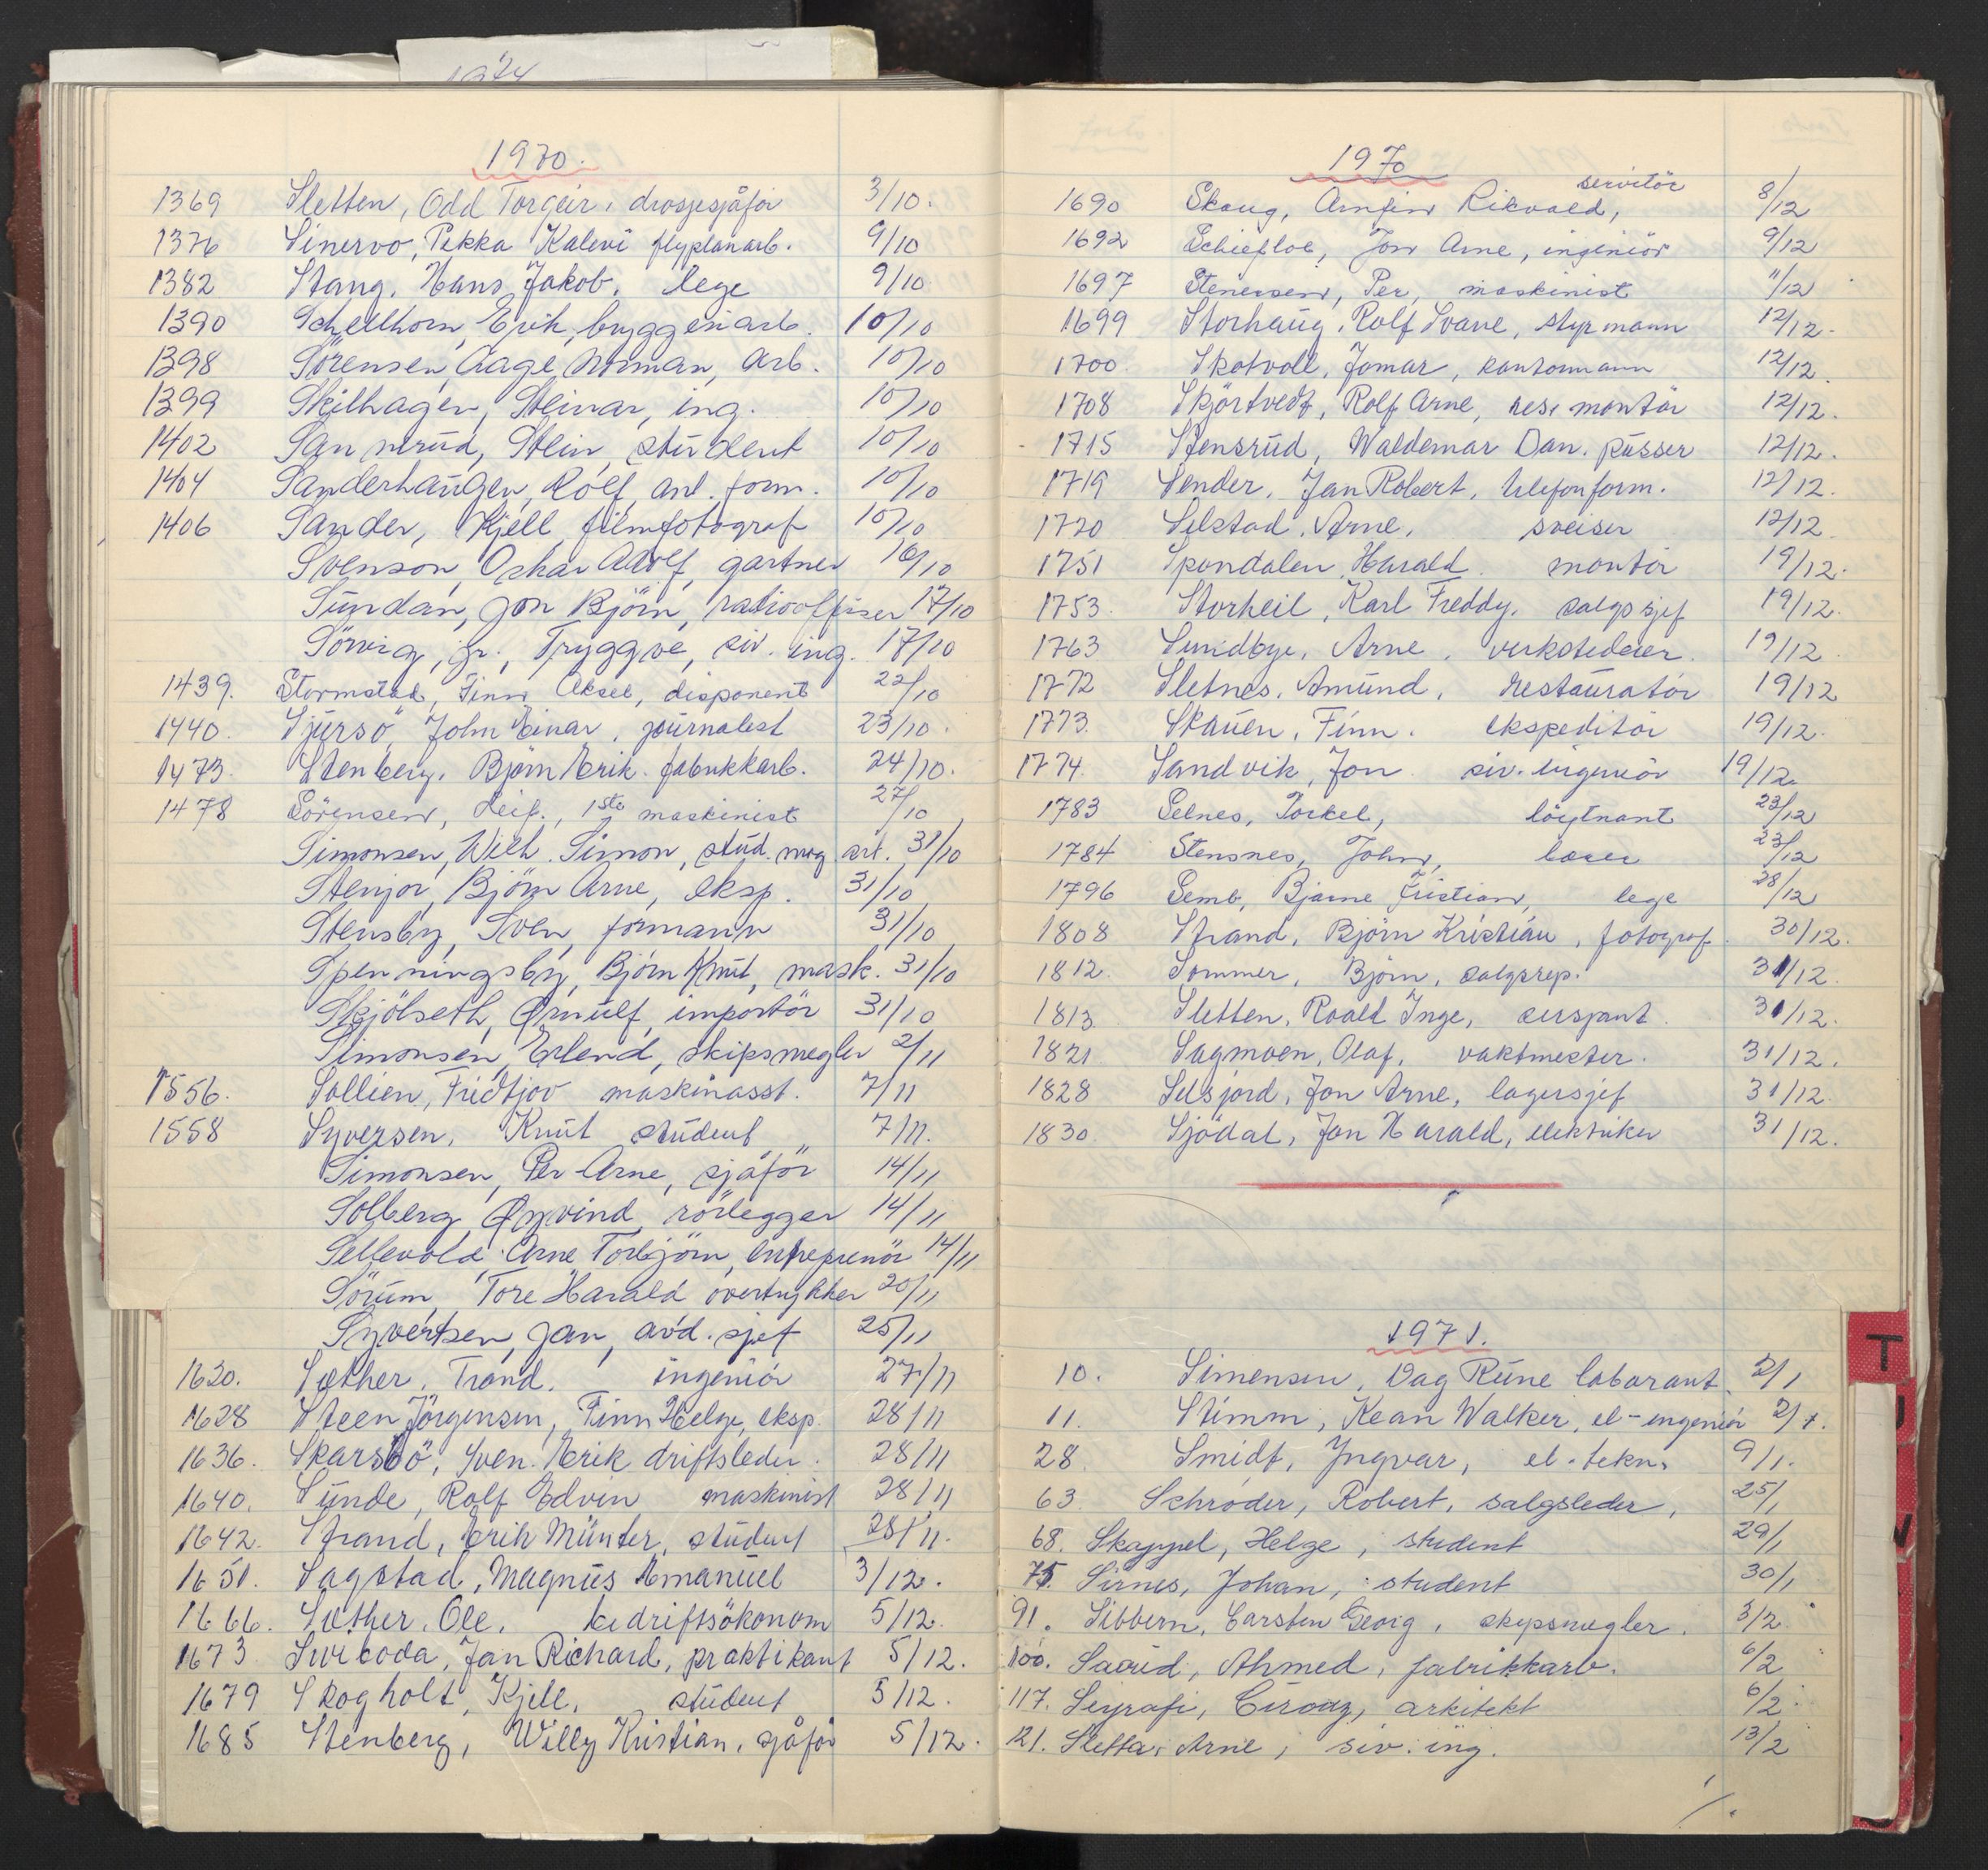 1974
1970.
1369 Sletten, Odd Torgeir, drosjesjåfør 3/10.
1376 Sinervo, Pekka Kalevi flyplanarb. 9/10
1382 Stang, Hans Jakob, lege 9/10
1390 Schellhorn, Erik, bryggeriarb. 10/10
1398 Sörensen, Aage Norman, arb. 10/10
1399 Skilhagen, Steinar, ing. 10/10
1402 Sannerud, Stein, student 10/10
1404 Sanderhaugen, Rolf, anl. form. 10/10
1406 Sander, Kjell, filmfotograf 10/10
Svenson, Oskar Adolf, gartner 16/10
Sundan, Jon Björn, radiooffiser 17/10
Sörvig, jr., Tryggve, siv. ing. 17/10
1439. Stormstad, Finn Aksel, disponent 22/10
1440. Sjursö, John Einar, journalist 23/10.
1473. Stenberg, Björn Erik. fabrikkarb. 24/10.
1478 Sörensen, Leif., 1ste maskinist 27/10
Simonsen, Wilh. Simon, stud. mag. art. 31/10
Stenjor, Björn Arne, eksp. 31/10
Stensby, Sven, formann 31/10
Spenningsby, Björn Knut, mask. 31/10
Skjölseth, Ørnulf, importör 31/10
Simonsen, Erlend, skipsmegler 2/11
1556. Sollien, Fridtjov maskinasst. 7/11
1558 Syversen, Knut student 7/11.
Simonsen, Per Arne, sjåför 14/11
Solberg, Øyvind, rörlegger 14/11
Sellevold, Arne Torbjörn, entreprenör 14/11
Sörum, Tore Harald overtrykker 20/11
Syvertsen, Jan, avd. sjef 25/11
1620. Sæther, Trond, ingeniör 27/11
1628 Steen Jörgensen, Finn Helge, eksp. 28/11
1636. Skarsbö, Sven Erik driftsleder. 28/11
1640. Sunde, Rolf Edvin maskinist 28/11
1642. Strand, Erik Münter, student 28/11.
1651. Sagstad, Magnus Emanuel 3/12.
1666. Sæther, Ole, bedriftsökonom 5/12.
1673 Svoboda, Jan Richard, praktikant 5/12.
1679 Skogholt, Kjell, student 5/12.
1685 Stenberg, Willy Kristian, sjåför 5/12.
1970
servitör
1690 Skaug, Arnfinn Rikvald, 8/12
1692 Schiefloe, Jon Arne, ingeniör 9/12
1697 Stenersen, Per, maskinist 11/12
1699 Storhaug, Rolf Svane, styrmann 12/12.
1700 Skotvoll, Jomar, kontormann 12/12.
1708 Skjörtvedt, Rolf Arne, montör 12/12.
1715 Stensrud, Waldemar Dan. pusser 12/12.
1719 Sender, Jan Robert, telefonform. 12/12.
1720 Selstad, Arne, sveiser 12/12.
1751 Spondalen, Harald. montör 19/12.
1753. Storheil, Karl Freddy, salgssjef 19/12.
1763 Sundbye, Arne, verkstedeier. 19/12
1772 Sletnes, Amund, restauratör 19/12
1773. Skauen, Finn. ekspeditör 19/12.
1774. Sandvik, Jon siv. ingeniör 19/12.
1783 Selnes, Torkel, löytnant 22/12
1784 Stensnes, John, 23/12
1796 Semb, Bjarne Kristian, lege 28/12
1808 Strand, Björn Kristian, fotograf. 30/12.
1812. Sommer, Björn, salgsrep. 31/12.
1813. Sletten, Roald Inge, sersjant. 31/12.
1821 Sagmoen, Olaf, vaktmester. 31/12.
1828 Selsjord, Jon Arne, lagersjef 31/12.
1830. Sjödal, Jon Harald, elektriker 31/12.
1971.
10. Simensen, Dag Rune laborant. 2/1
11. Stimm, Kean Walker, el-ingeniör 2/1.
28 Smidt, Yngvar, el. tekn. 9/1.
63 Schröder, Robert, salgsleder, 25/1
68. Skappel, Helge, student 29/1
75. Sirnes, Johan, student 30/1
91. Sibbern, Carsten Georg, skipsmegler. 3/2
100. Saaid, Ahmed, fabrikkarb. 6/2
117. Seyrafi, arkitekt 6/2.
121. Sletta, Arne, siv. ing. 13/2
T